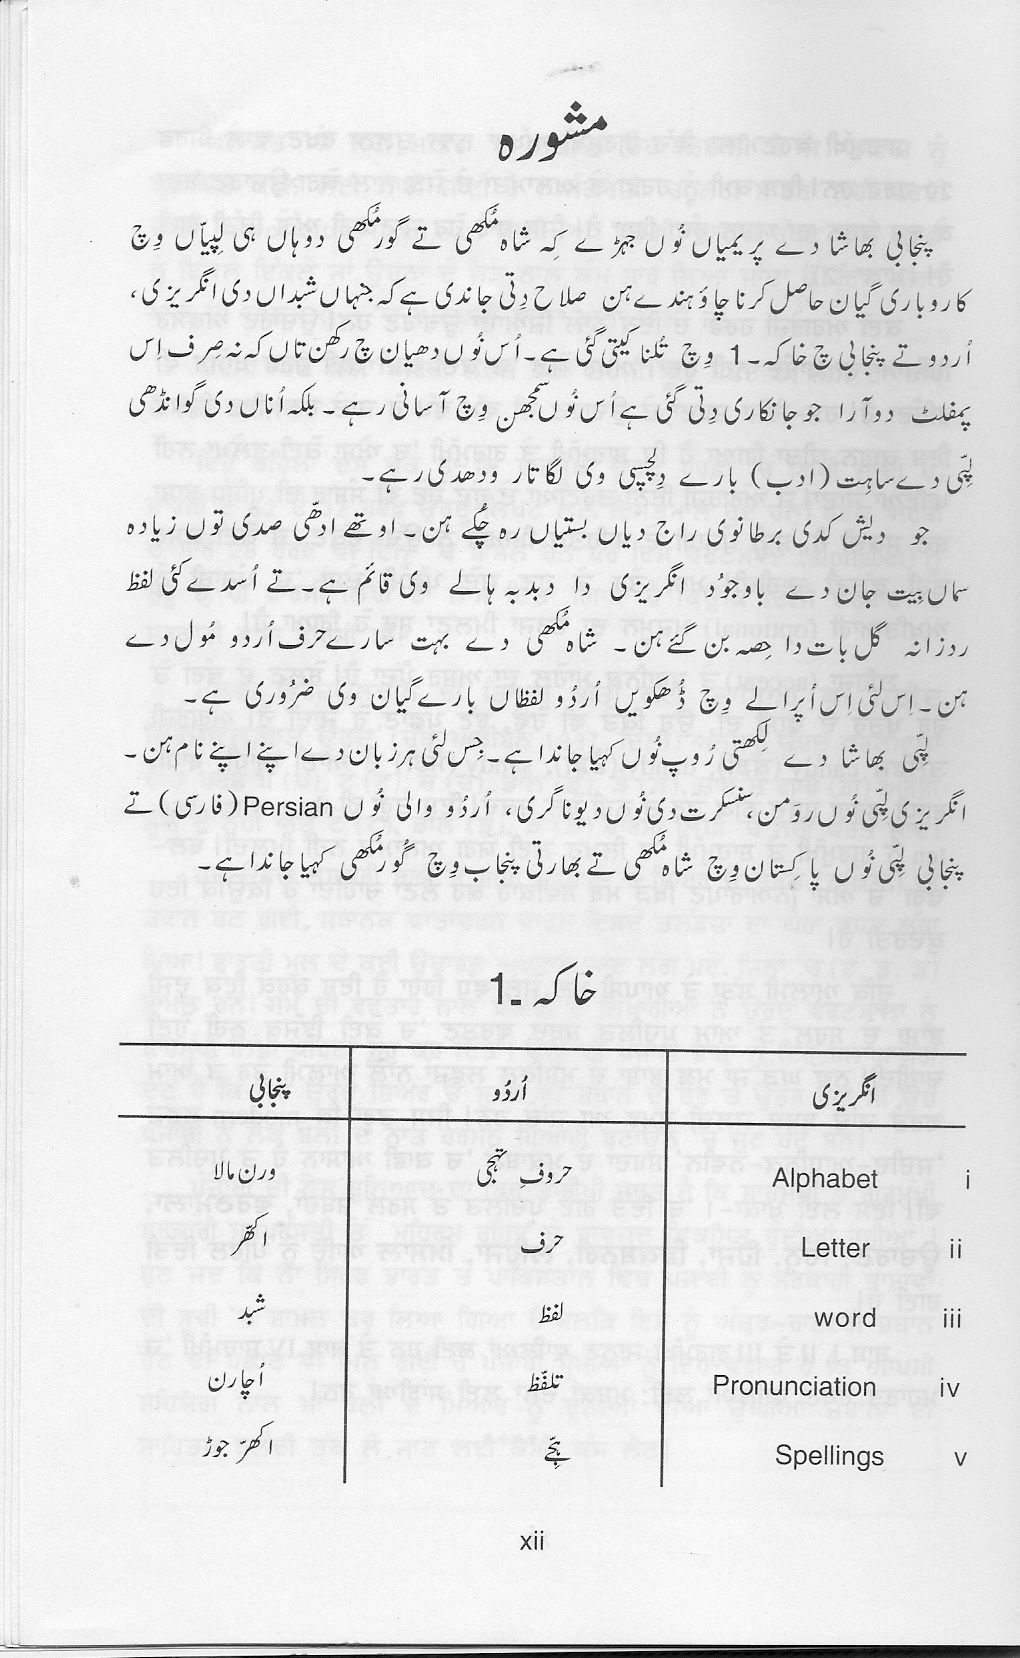 مشورہ
پنجابی بھاشا دے پریمیاں نُوں جہڑے کِہ شاہ مُکھی تے گورمُکھی دوہاں ہی لِپیاّں وِچ
کاروباری گیان حاصل کرنا چاؤہندے ہن صلاح دِتی جاندی ہے کہ جنہاں شبداں دی انگریزی،
اُردو تے پنجابی چ خاکہ۔1 وِچ تُلنا کیتی گئی ہے۔ اُس نُوں دھیان چ رکھن تاں کہ نہ صِرف اِس
پمفلٹ دوآرا جو جانکاری دِتی گئی ہے اُس نُوں سمجھن وِچ آسانی رہے۔ بلکہ اُناں دی گوانڈھی
لِپّی دے ساہِت (ادب) بارے دِلچسپی وی لگاتار ودھدی رہے۔
جو دیش کدی برطانوی راج دیاں بستیاں رہ چُکے ہن۔ اوتھے ادھّی صدی توں زیادہ
سماں بِیت جان دے باوجوُد انگریزی دا دبدبہ ہالے وی قائم ہے۔ تے اُسدے کئی لفظ
ردزانہ گل بات دا حِصہ بن گئے ہن۔ شاہ مُکھی دے بہت سارے حرف اُردو مُول دے
ہن۔ اِس لئی اِس اُپرالے وِچ ڈُھکویں اُردُو لفظاں بارے گیان وی ضرُوری ہے۔
لِپّی بھاشا دے لِکھتی رُوپ نُوں کہیا جاندا ہے۔ جِس لئی ہر زبان دے اپنے اپنے نام ہن۔
انگریزی لِپّی نُوں روَمن، سنسکرت دی نُوں دیوناگری، اُردُو والی نُوں Persian (فارسی) تے
پنجابی لِپّی نُوں پاکِستان وِچ شاہ مُکھی تے بھارتی پنجاب وِچ گُورمُکھی کہیا جاندا ہے۔
خاکہ ۔1
انگریزی اُردُو پنجابی
i Alphabet حروفِ تہجّی ورن مالا
ii Letter حرف اکھّر
iii word لفظ شبد
iv Pronunciation تلفّظ اُچارن
v Spellings ہِجّے اکھرّ جوڑ
xii